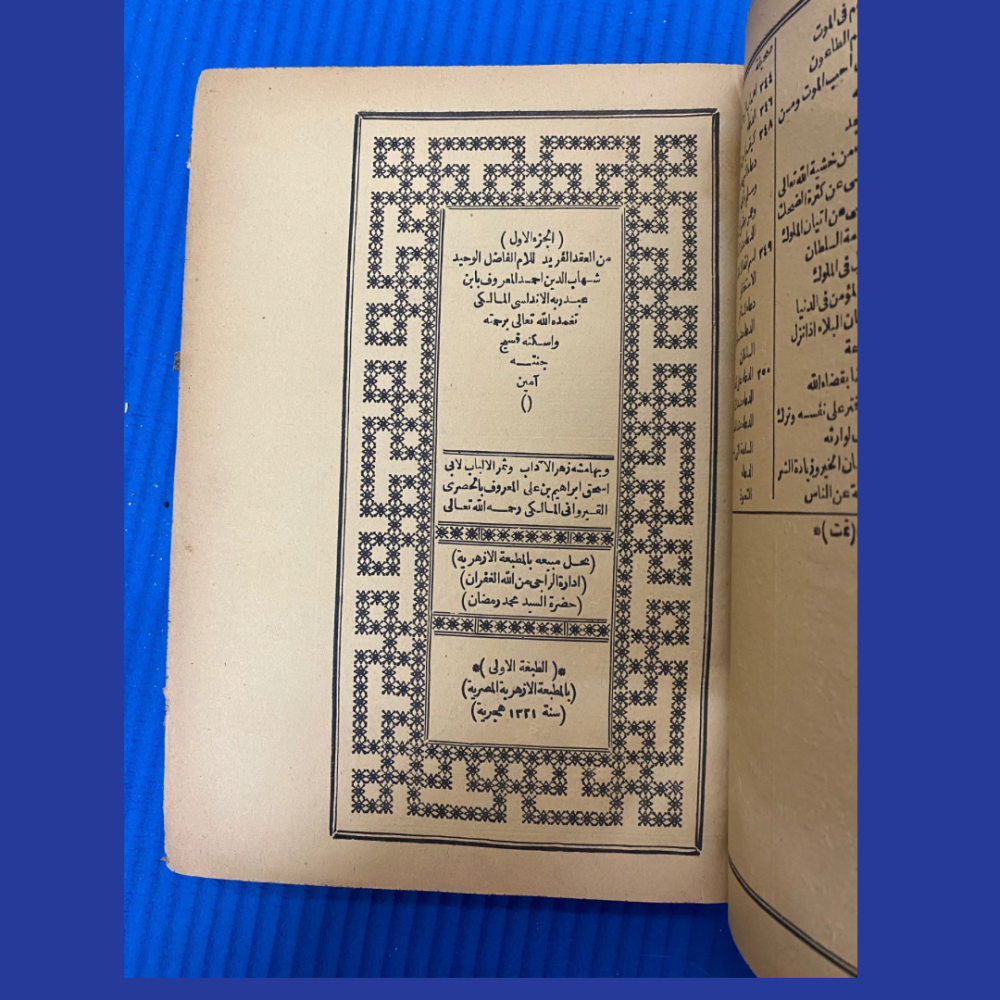 (الجزء الاول)
من العقد الفريد للامام الفاضل الوحيد
شهاب الدين احمد المعروف بابن
عبدربه الاندلسى المالكى
تغمده الله تعالى برحمته
واسكنه فسيح
جنتـــه
آمين
()
وبهامشه زهر الآداب وثمر الالباب لابى
اسحق ابراهيم بن على المعروف بالحصرى
القيروانى المالكى رحمه الله تعالى
(محل مبيعه بالمطبعة الازهرية)
(ادارة الراجى من الله الغفران)
(حضرة السيد محمد رمضان)
*( الطبعة الاولى )*
(بالمطبعة الازهرية المصرية)
(سنة ١٣٢١ هجرية)
صحيفة
٣٤٤
٣٤٦
٣٤٨
٣٤٩
٣٥٠
فى الموت
الطاعون
احب الموت ومن
من خشية الله تعالى
عن كثرة الضحك
عن اتيان الملوك
السلطان
فى الملوك
المؤمن فى الدنيا
البلاء اذا نزل
بقضاء الله
على نفسه وترك
لوارثه
الخير وزيادة الشر
عن الناس
(تمت)*